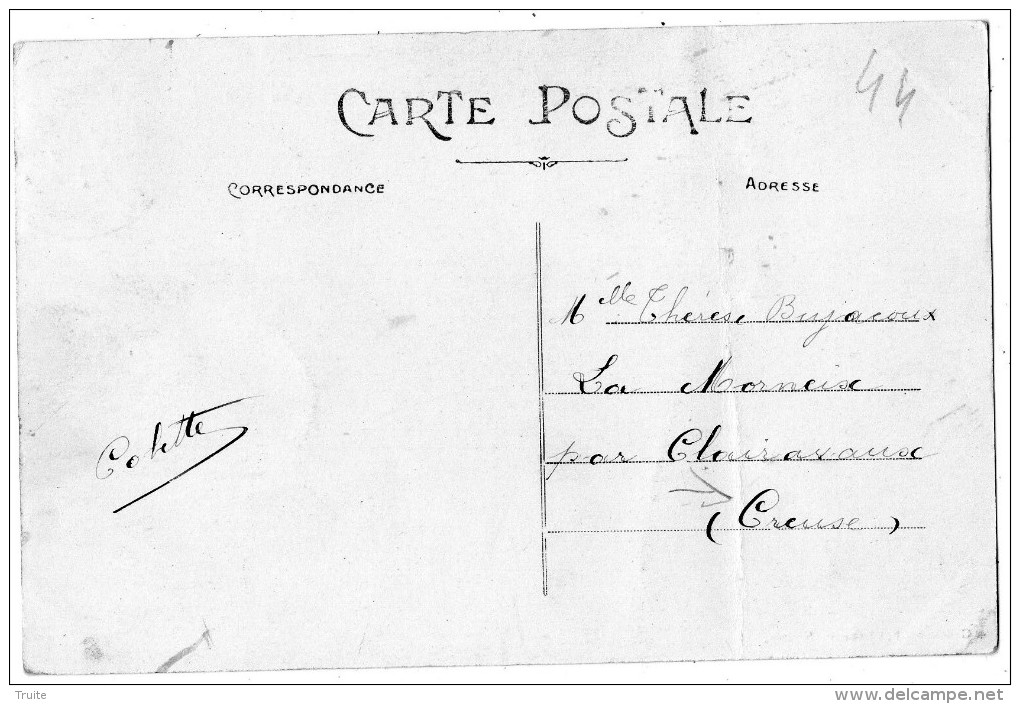 44
CARTE POSTALE
CORRESPONDANCE
ADRESSE
Mlle Thérèse Bujacoux
La Morneix
par Clairavaux
(Creuse)
Colette
Truite
www.delcampe.net